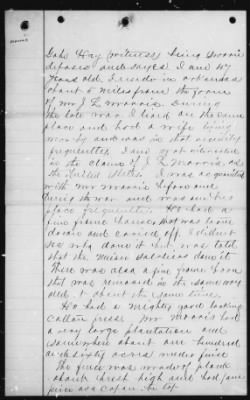 Gabe Hay (witness) being sworn
deposes and says. I am 47
years old. I reside in Arkansas
about 5 miles from the farm
of Mr J. L. Morris. During
the late war I lived on the same
place and had a wife living
and was in that vicinity
frequently. I am not interested
in the claim of J. L. Morris vs
the United States. I was acquainted
with Mr Morris before and
during the war and was on his
place frequently. He had a
fine frame house, but was torn
down and carried off. I didn't
see who done it but was told
that the Union soldiers done it.
There was also a fine gin
that was removed in the same way
and at about the same time.
He had a mighty good looking
cotton press. Mr Morris had
a very large plantation and
somewhere about one hundred
and sixty acres under fence
The fence was made of plank
about breast high and had
a cap on the top